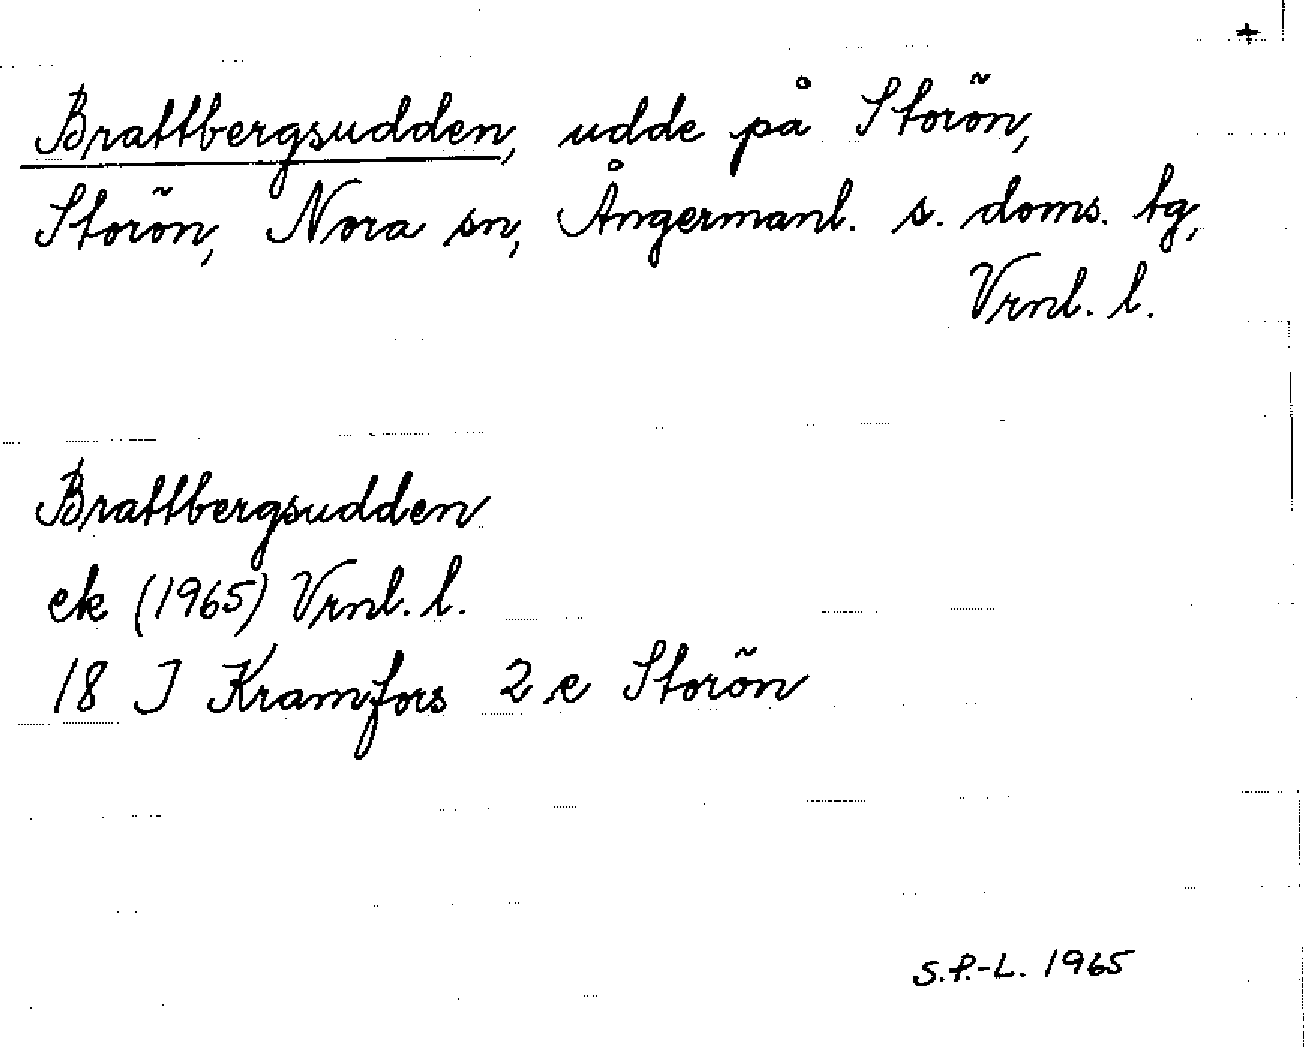 +
Brattbergsudden, udde på Storön,
Storön, Nora sn, Ångermanl. s. doms. tg,
Vrnl. l.
Brattbergsudden
ek (1965) Vrnl. l.
18 J Kramfors 2 e Storön
S.P.-L. 1965